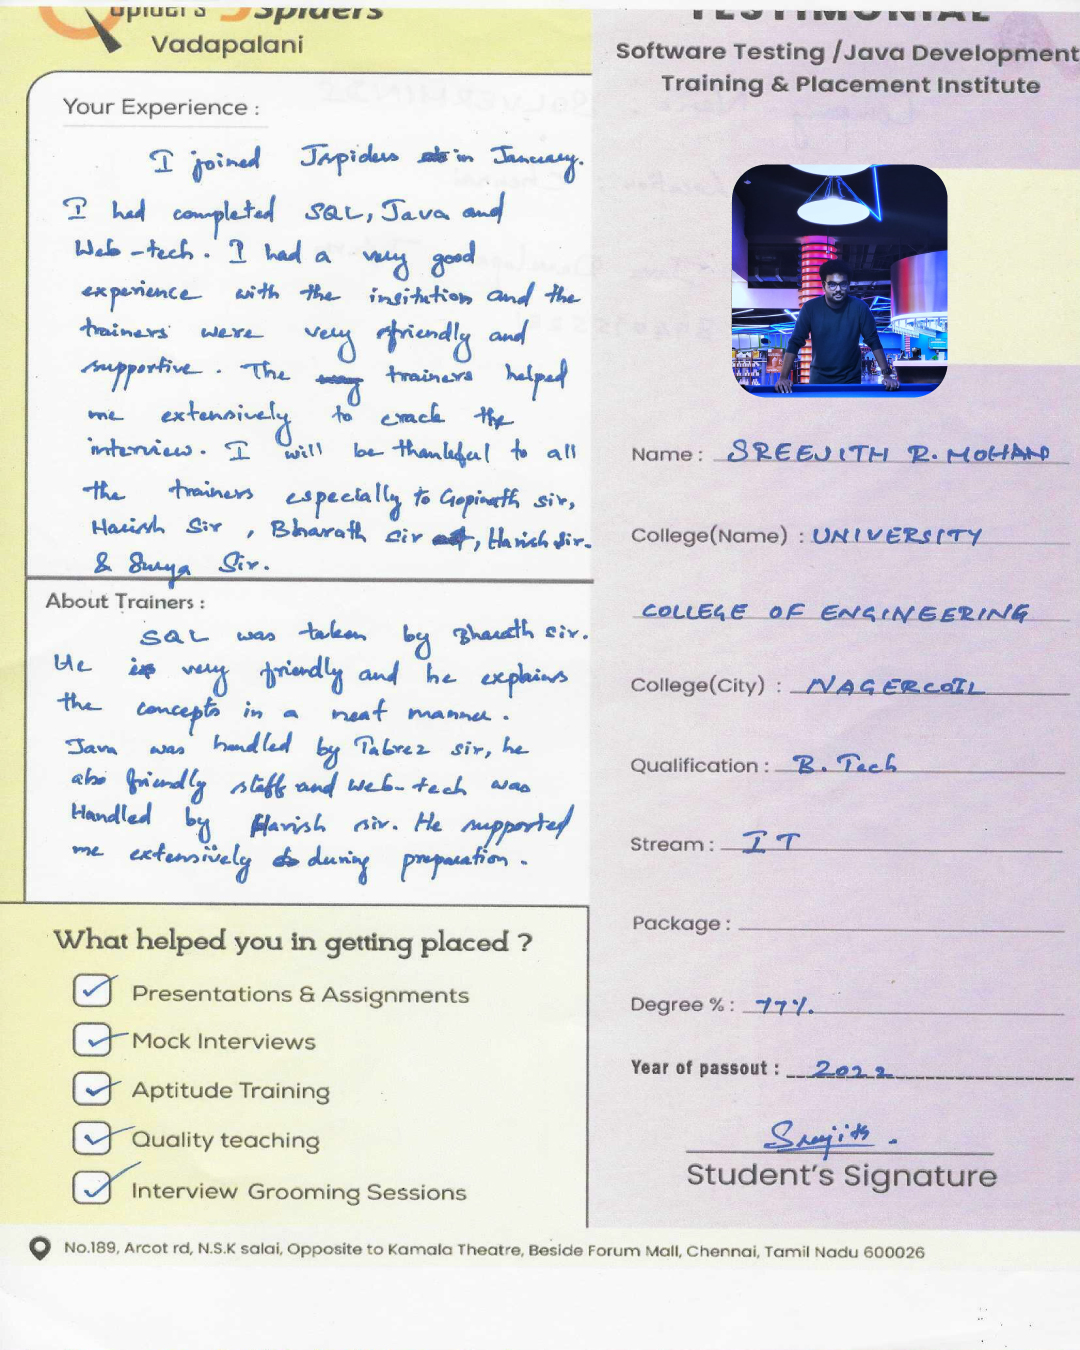 Spiders
Vadapalani
TESTIMONIAL
Software Testing /Java Development
Training & Placement Institute
Your Experience :
I joined Jspiders in January.
I had completed SQL, Java and
Web-tech. I had a very good
experience with the insitution and the
trainers were very friendly and
supportive. The trainers helped
me extensively to crack the
interview. I will be thankful to all
the trainers especially to Gopinath sir,
Harish Sir, Bharath sir, Harish sir.
& Surya Sir.
About Trainers :
SQL was taken by Bharath sir.
He is very friendly and he explains
the concepts in a neat manner.
Java was handled by Tabrez sir, he
also friendly staff and web-tech was
Handled by Harish sir. He supported
me extensively during preparation.
What helped you in getting placed ?
Presentations & Assignments
Mock Interviews
Aptitude Training
Quality teaching
Interview Grooming Sessions
Name : SREEJITH R. MOHAN
College(Name) : UNIVERSITY
COLLEGE OF ENGINEERING
College(City) : NAGERCOIL
Qualification : B. Tech
Stream : IT
Package :
Degree % : 77%.
Year of passout : 2022
Sreejith.
Student's Signature
No.189, Arcot rd, N.S.K salai, Opposite to Kamala Theatre, Beside Forum Mall, Chennai, Tamil Nadu 600026